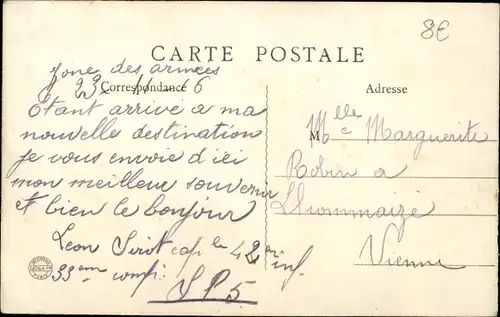 8€
CARTE POSTALE
Zone des armées
Correspondance
Adresse
Étant arrivé a ma
nouvelle destination
je vous envoie d'ici
mon meilleur souvenir
et bien le bonjour
Leon cap le 42
33em
S P 5
Mlle Marguerite
Robin a
Lhommaizé
Vienne